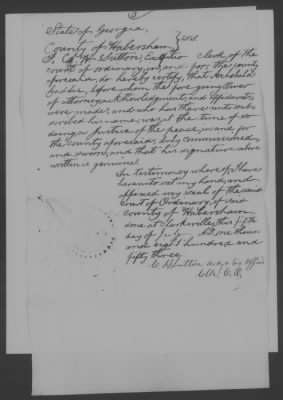 State of Georgia,
County of Habersham
I, C. H. Sutton, Ex officio clerk of the
court of ordinary, in, and for, the county
aforesaid, do hereby certify, that Archibald
before whom the foregoing power
of attorney, acknowledgment, and affidavits
were made, and who has thereunto sub-
scribed his name, was, at the time of so
doing, a justice of the peace, in and for
the county aforesaid, duly commissioned,
and sworn, and that his signature above
written is genuine.
In testimony whereof, I have
hereunto set my hand, and
affixed my seal of the said
court of Ordinary, of said
county of Habersham
done at Clarksville, this fifth
day of July A.D. one thou
eight hundred and
fifty three
C. H. Sutton Ex Officio
Clk. C. O.